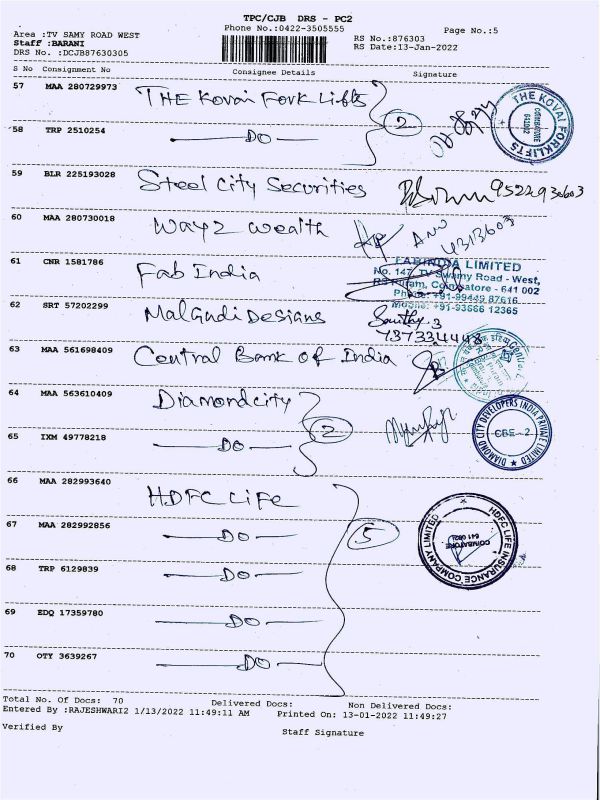 TPC/CJB DRS - PC2
Phone No.:0422-3505555
Page No.:5
Area :TV SAMY ROAD WEST
Staff :BARANI
DRS No. :DCJB87630305
RS No.:876303
RS Date:13-Jan-2022
S No Consignment No Consignee Details Signature
57 MAA 280729973 THE Kovai Fork Lifts
58 TRP 2510254 DO 2
THE KOVAI FORKLIFTS COIMBATORE
59 BLR 225193028 Steel City Securities 9522930603
60 MAA 280730018 Way2 Wealth
61 CNR 1581786 Fab India
FABINDIA LIMITED
No. 147, TV Swamy Road - West,
RS Puram, Coimbatore - 641 002
Phone: +91-99449 87616
Mobile: +91-93666 12365
62 SRT 57202299 Malgudi Designs
737334448
63 MAA 561698409 Central Bank of India
64 MAA 563610409 Diamondcity
65 IXM 49778218 DO 2
DIAMOND CITY DEVELOPERS INDIA PRIVATE LIMITED CBE - 2
66 MAA 282993640 HDFC LiFe
67 MAA 282992856 DO 5
HDFC LIFE INSURANCE COMPANY LIMITED COIMBATORE
68 TRP 6129839 DO
69 EDQ 17359780 DO
70 OTY 3639267 DO
Total No. Of Docs: 70 Delivered Docs: Non Delivered Docs:
Entered By :RAJESHWARI2 1/13/2022 11:49:11 AM Printed On: 13-01-2022 11:49:27
Verified By Staff Signature